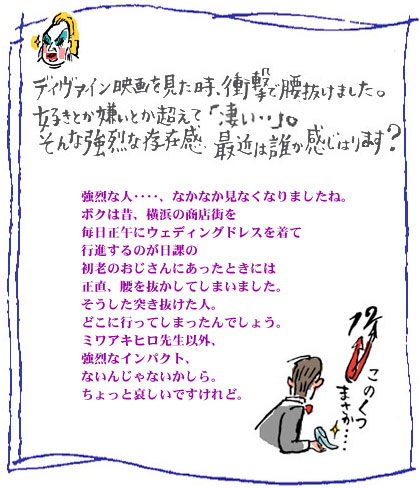 ディヴァイン映画を見た時、衝撃で腰抜けました。
好きとか嫌いとか超えて「凄い‥」。
そんな強烈な存在感、最近は誰か感じはります?
強烈な人‥‥、なかなか見なくなりましたね。
ボクは昔、横浜の商店街を
毎日正午にウェディングドレスを着て
行進するのが日課の
初老のおじさんにあったときには
正直、腰を抜かしてしまいました。
そうした突き抜けた人。
どこに行ってしまったんでしょう。
ミワアキヒロ先生以外、
強烈なインパクト、
ないんじゃないかしら。
ちょっと哀しいですけれど。
このくつ
まさか‥‥